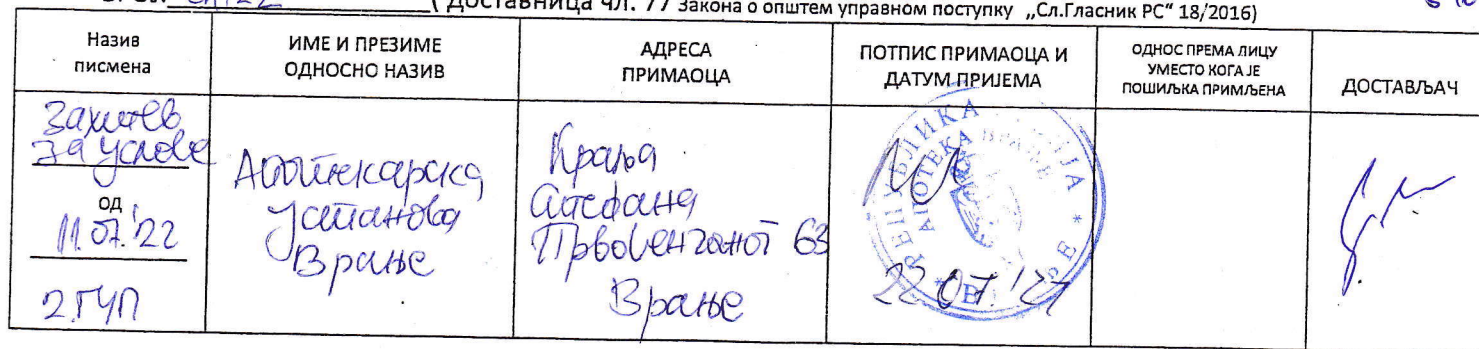 ( Доставница чл. 77 Закона о општем управном поступку „Сл.Гласник РС“ 18/2016)
Назив
писмена
ИМЕ И ПРЕЗИМЕ
ОДНОСНО НАЗИВ
АДРЕСА
ПРИМАОЦА
ПОТПИС ПРИМАОЦА И
ДАТУМ ПРИЈЕМА
ОДНОС ПРЕМА ЛИЦУ
УМЕСТО КОГА ЈЕ
ПОШИЉКА ПРИМЉЕНА
ДОСТАВЉАЧ
Захтев
за услове
од
11.07.'22
2.ГУП
Апотекарска
Установа
Врање
Краља
Стефана
Првовенчаног 63
Врање
РЕПУБЛИКА
АПОТЕКА ВРАЊЕ
22 07.